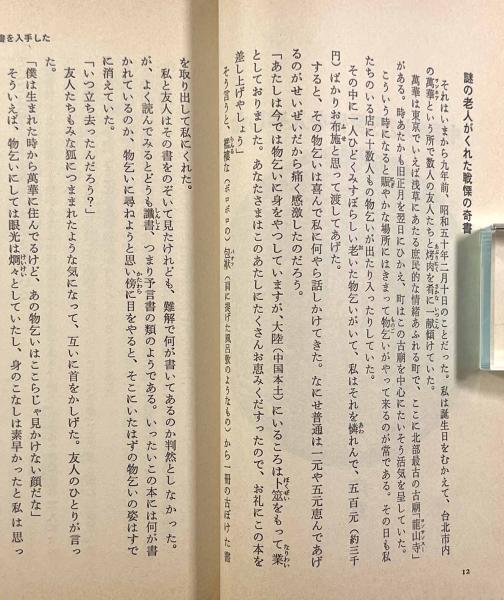 謎の老人がくれた戦慄の奇書
それはいまから九年前、昭和五十年二月十日のことだった。私は誕生日をむかえて、台北市内
の萬華という所で数人の友人たちと烤肉を肴に一献傾けていた。
萬華は東京でいえば浅草にあたる庶民的な情緒あふれる町で、ここに北部最古の古廟「龍山寺」
がある。時あたかも旧正月を翌日にひかえ、町はこの古廟を中心にたいそう活気を呈していた。
こういう時になると賑やかな場所にはきまって物乞いがやって来るのが常である。その日も私
たちのいる店に十数人もの物乞いが出たり入ったりしていた。
その中に一人ひどくみすぼらしい老いた物乞いがいて、私はそれを憐れんで、五百元（約三千
円）ばかりお布施と思って渡してあげた。
すると、その物乞いは喜んで私に何やら話しかけてきた。なにせ普通は一元や五元恵んであげ
るのがせいぜいだから痛く感激したのだろう。
「あたしは今では物乞いに身をやつしていますが、大陸（中国本土）にいるころは卜筮をもって業
としておりました。あなたさまはこのあたしにたくさんお恵みくだすったので、お礼にこの本を
差し上げやしょう」
そう言うと、襤褸な（ボロボロの）包袱（肩に提げた風呂敷のようなもの）から一冊の古ぼけた書
を取り出して私にくれた。
私と友人はその書をのぞいて見たけれども、難解で何が書いてあるのか判然としなかった。
が、よく読んでみるとどうも讖書、つまり予言書の類のようである。いったいこの本には何が書
かれているのか、物乞いに尋ねようと思い傍に目をやると、そこにいたはずの物乞いの姿はすで
に消えていた。
「いつ立ち去ったんだろう？」
友人たちもみな狐につままれたような気になって、互いに首をかしげた。友人のひとりが言っ
た。
「僕は生まれた時から萬華に住んでるけど、あの物乞いはここらじゃ見かけない顔だな」
そういえば、物乞いにしては眼光は烱々としていたし、身のこなしは素早かったと私は思っ
書を入手した
12